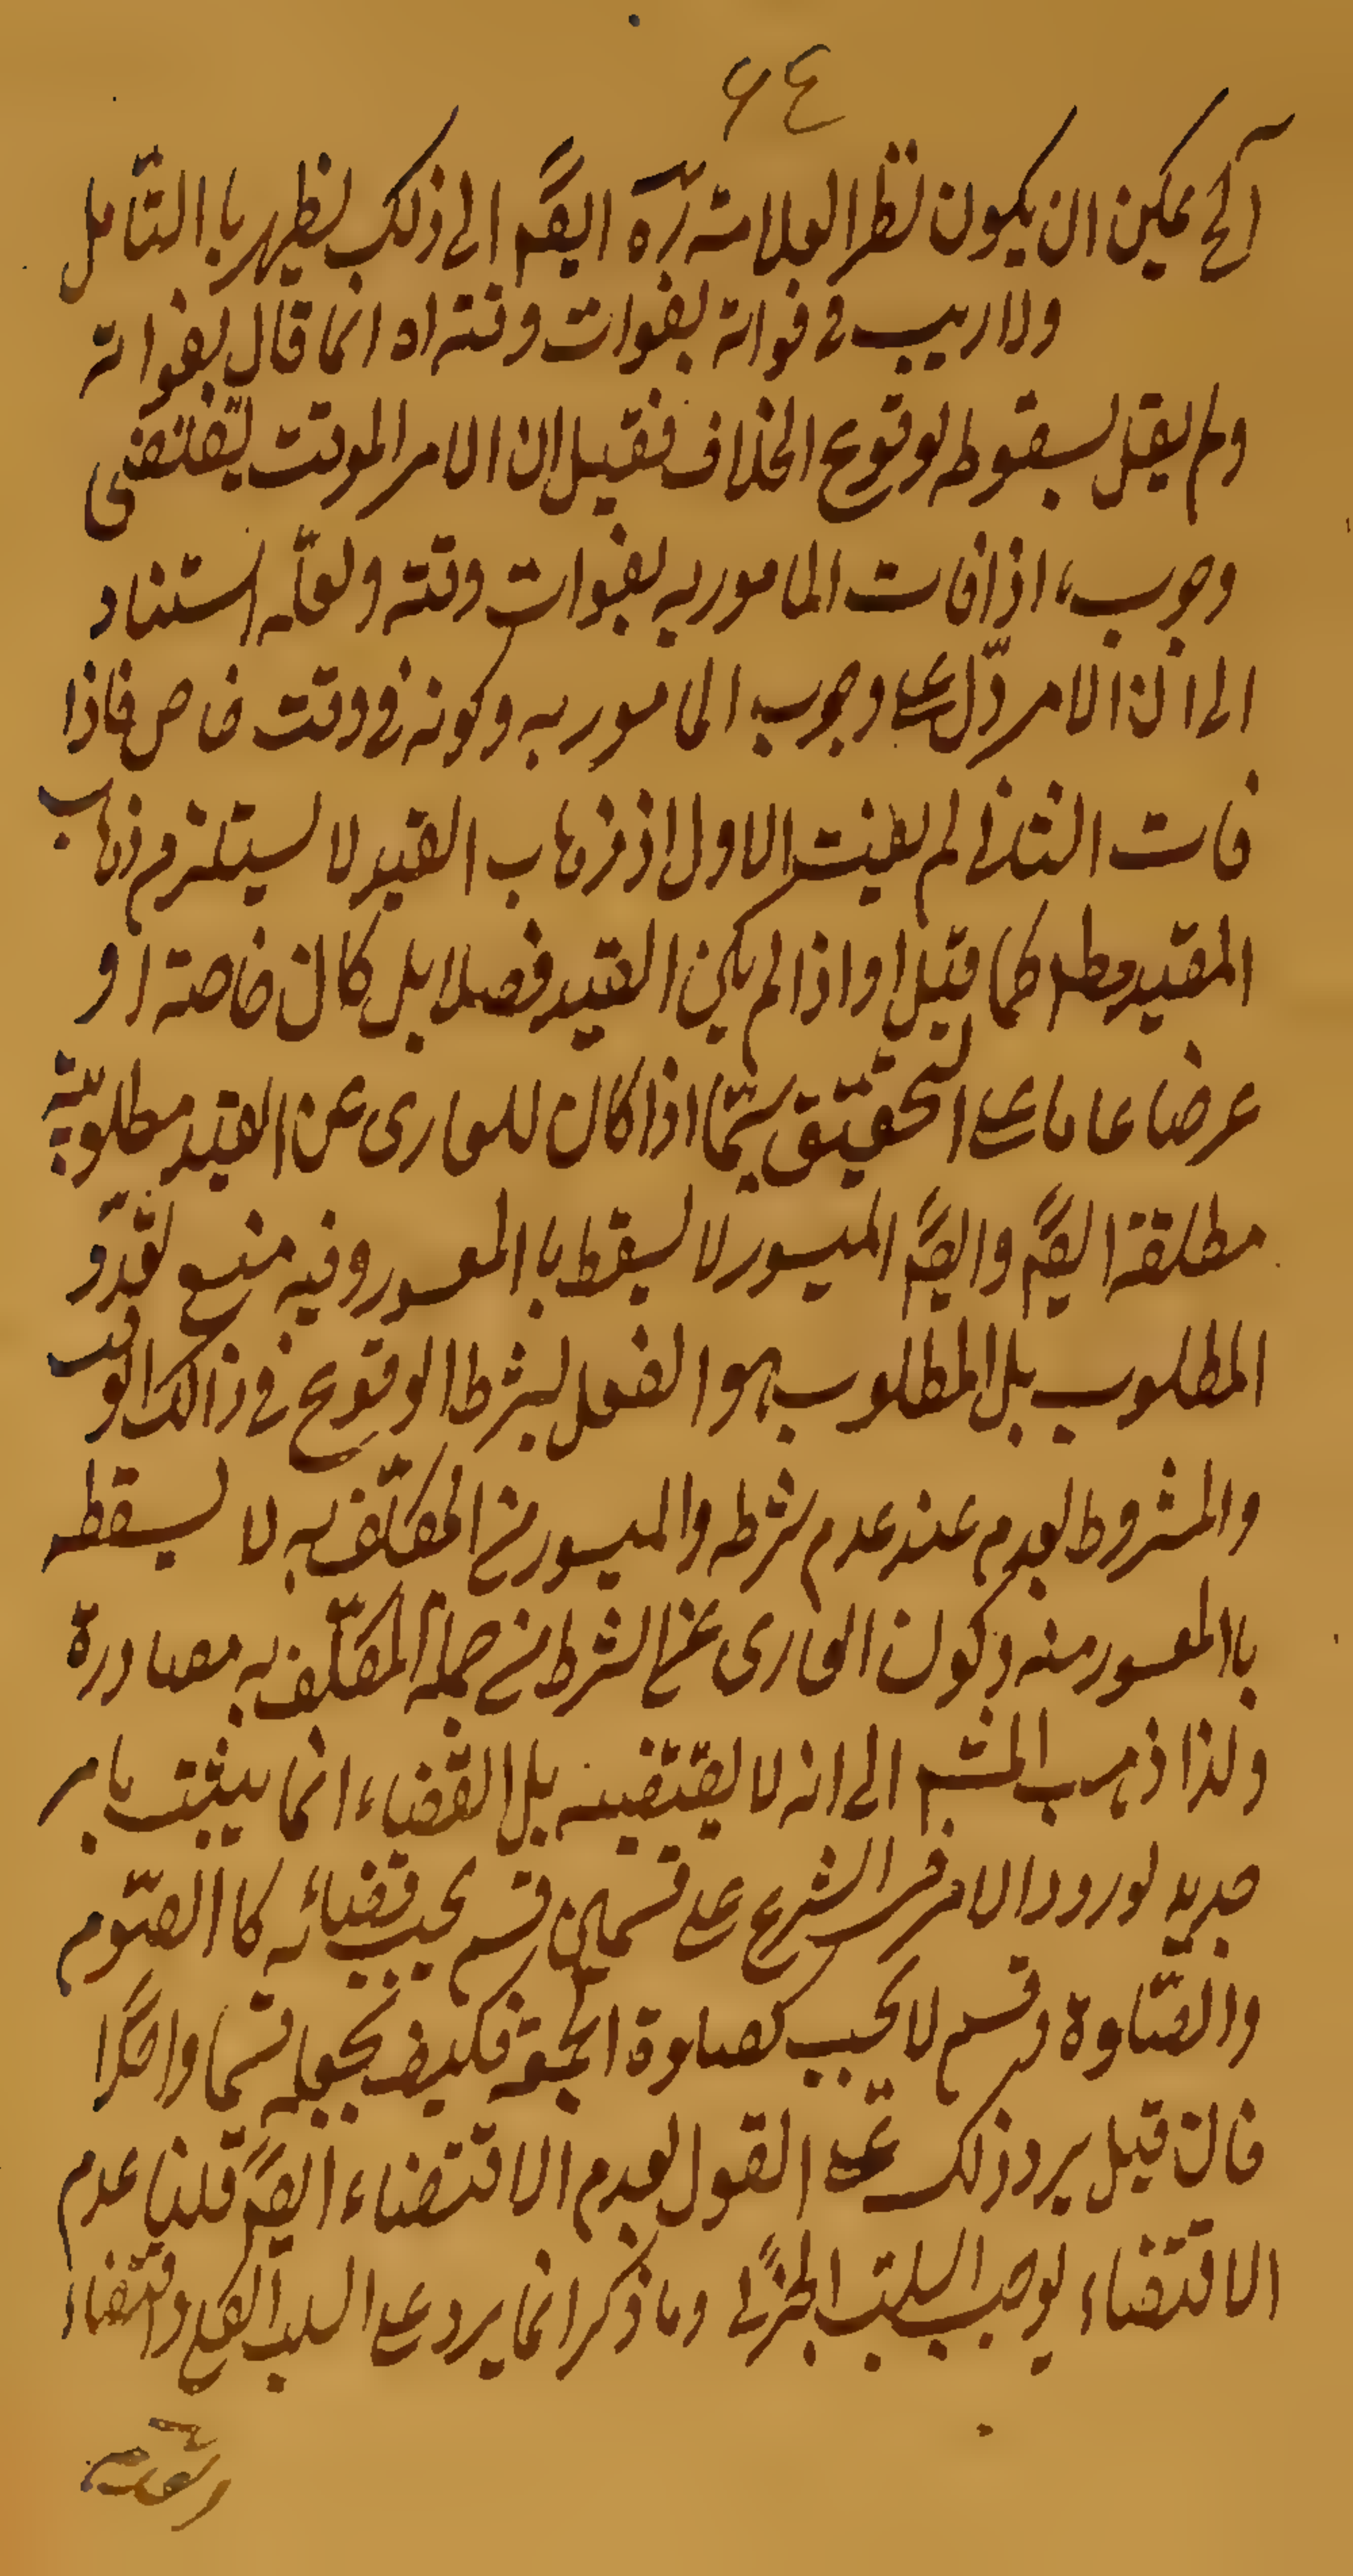 ٦٤
آلخ يمكن ان يكون نظر العلامة ره ايضًا الى ذلك يظهر با التأمل
ولا ريب فى فواته بفوات وقته اه انما قال بفواته
ولم يقل بسقوطه لوقوع الخلاف فقيل ان الامر الموقت يقتضى
وجوب اذا فات المامور به بفوات وقته ولعلّه استناد
الى ان الامر دلّ على وجوب المامور به وكونه فى وقت خاص فاذا
فات الثانى لم يفت الاول اذ ذهاب القيد لا يستلزم ذهاب
المقيّد مطلـ كما قيل او اذا لم يكن القيد فصلا بل كان خاصة او
عرضا عاما على التحقيق سيّما اذا كان للعارى عن القيد مطلوبية
مطلقة ايضًا وايضًا الميسور لا يسقط با المعسور وفيه منع تعدّد
المطلوب بل المطلوب هو الفعل بشرط الوقوع فى ذالك الوقت
والمشروط يعدم عند عدم شرطه والميسور من المكلّف به لا يسقط
با المعسور منه وكون العارى عن الشرط من جملة المكلّف به مصادرة
ولذا ذهب المشـ الى انه لا يقتضيه بل القضاء انما يثبت بامر
جديد لورود الامر فى الشرع على قسمين قسم يجب قضائه كا الصّوم
والصّلوة وقسم لا يجب كصلوة الجمعة فكيف يجعله قسما واحدًا
فان قيل يرد ذلك على القول بعدم الاقتضاء ايضًا قلنا عدم
الاقتضاء يوجب السلب الجزئى وما ذكر انما يرد على السلب الكلى واقتضاء